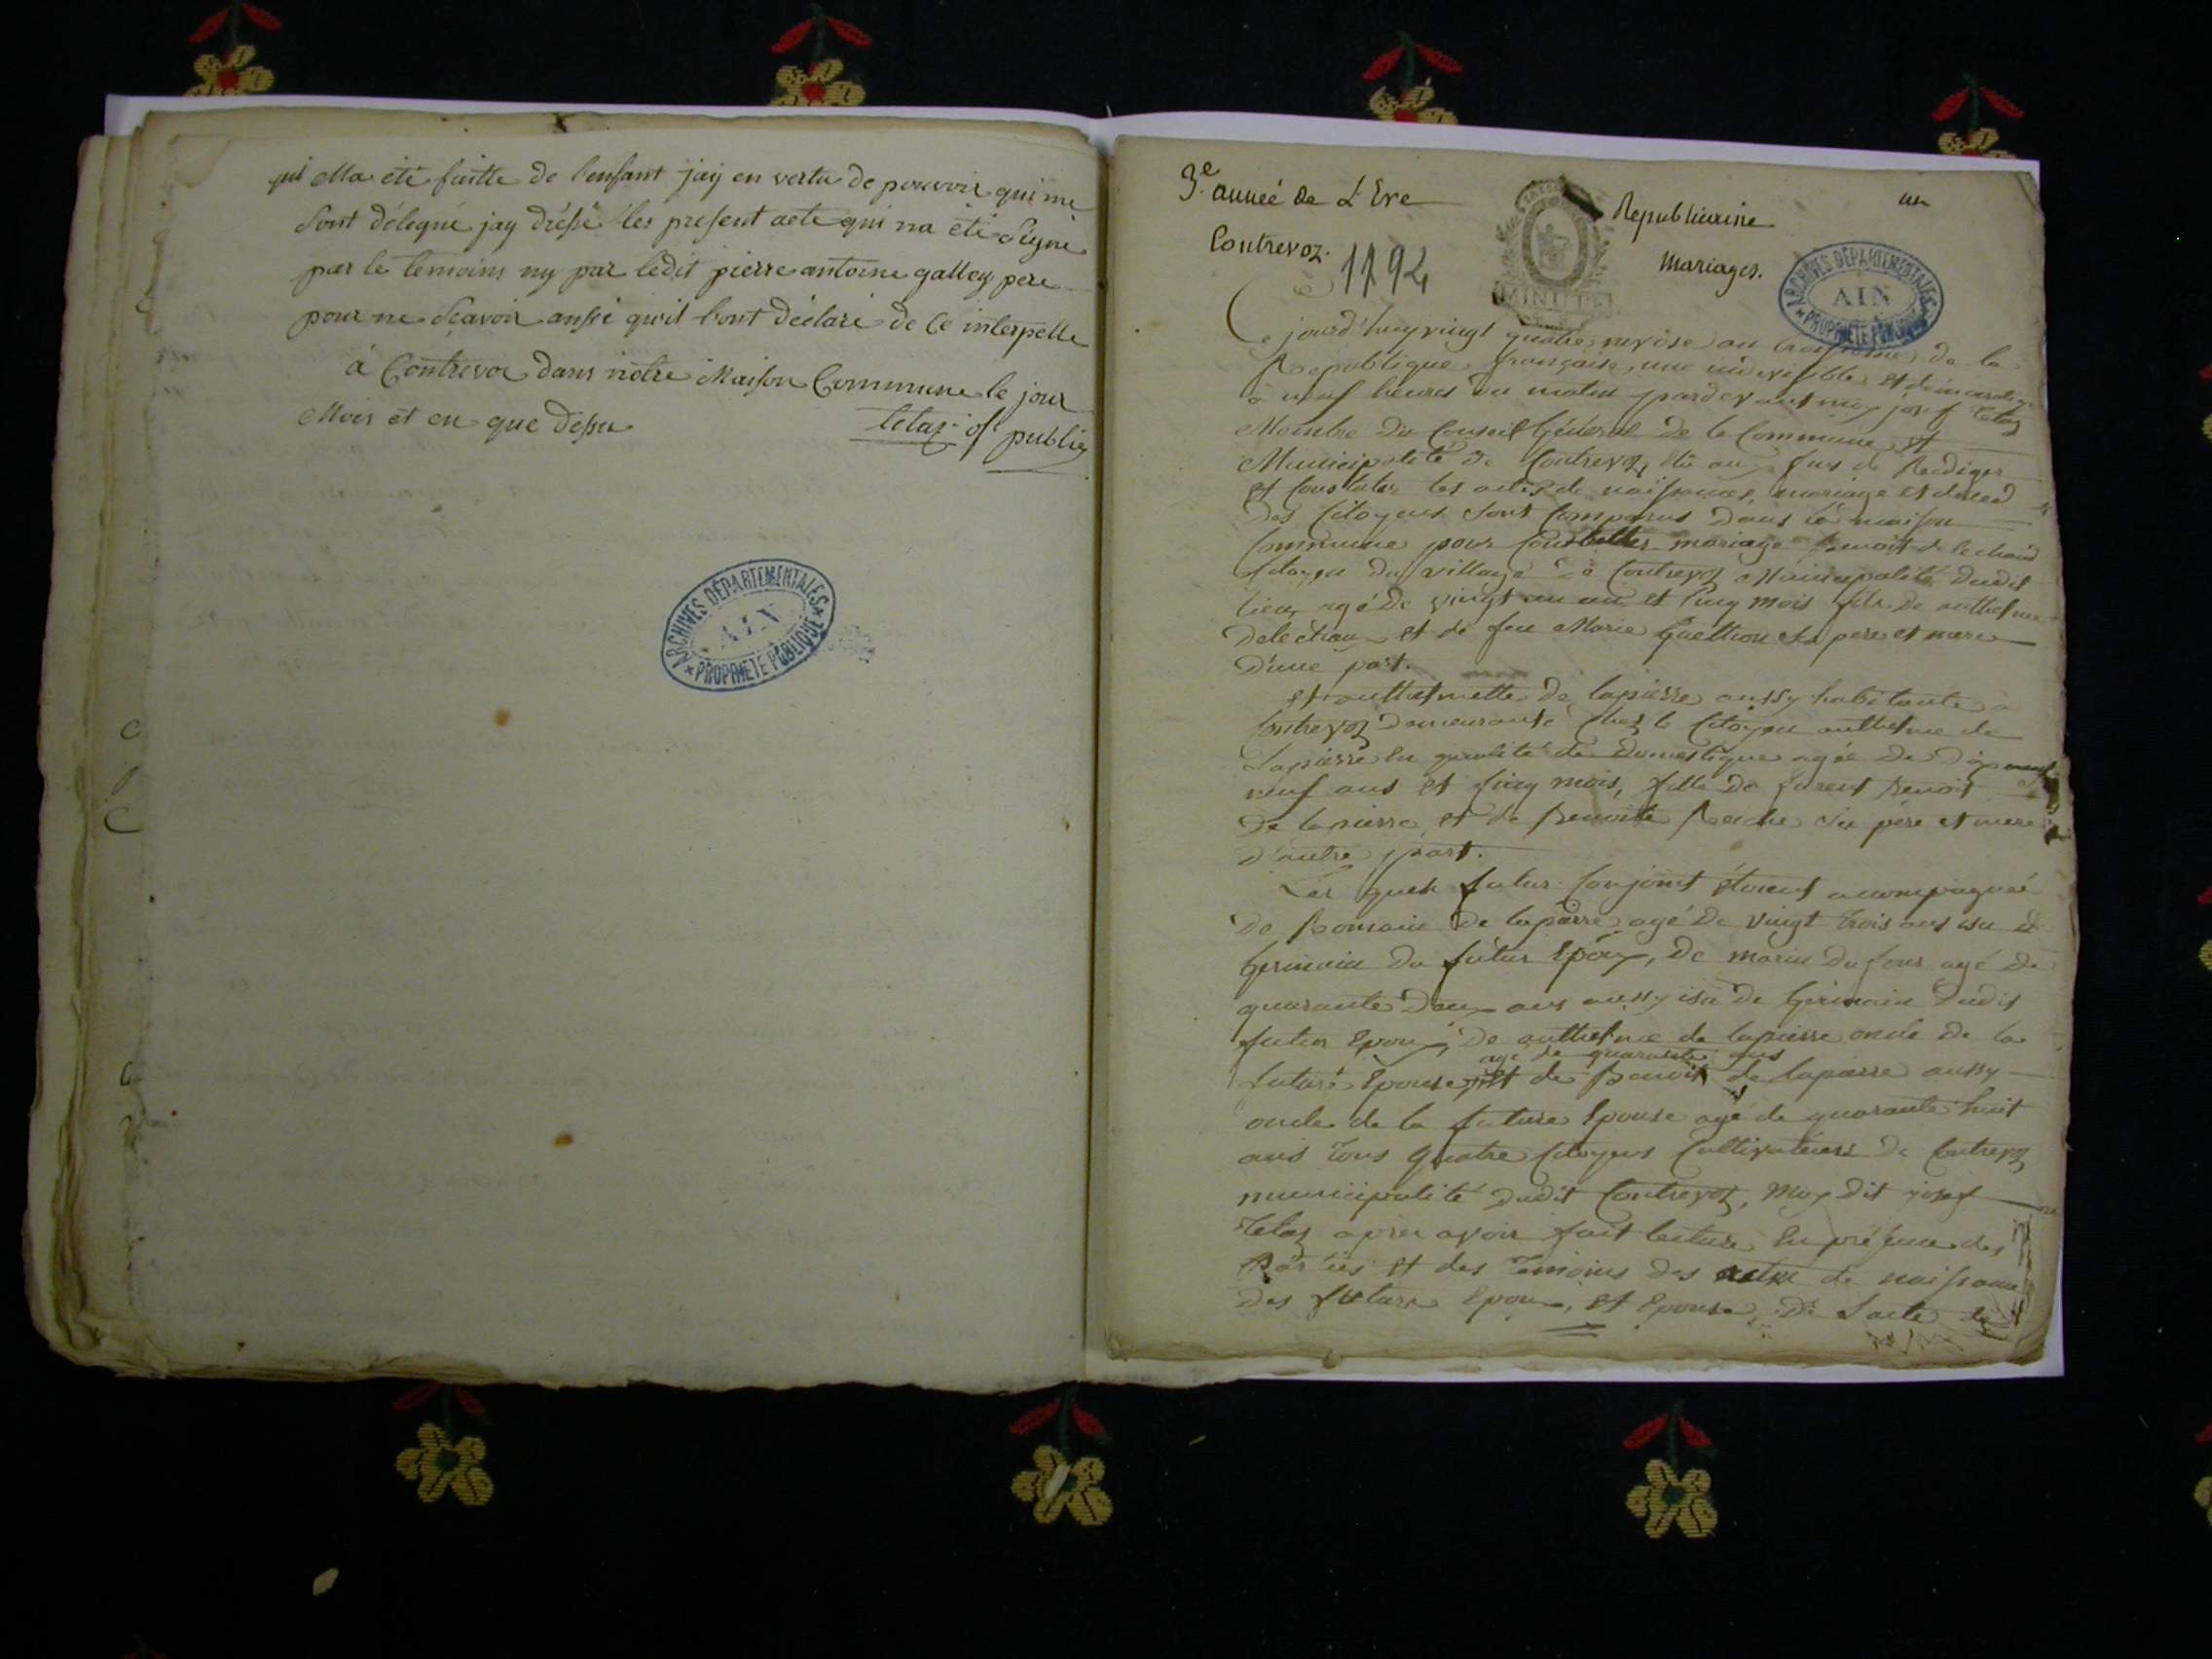 qui Ma été faitte de l'enfant jay en vertu de pouvoir qui me
sont délegué jay dréssé les present acte qui na été signé
par le temoins ny par ledit pierre antoine galley pere
pour ne sçavoir ainssi qu'il l'ont déclaré de ce interpelle
à Contrevoz dans nôtre Maison Commune le jour
Mois et en que dessu
telaz of publiq
ARCHIVES DÉPARTEMENTALES
AIN
PROPRIÉTÉ PUBLIQUE
3e année de L'Ere Republicaine un
Contrevoz. 1794 Mariages.
MINUTE
ARCHIVES DÉPARTEMENTALES
AIN
PROPRIÉTÉ PUBLIQUE
Ce jourd'huy vingt quatre nivose an troisieme de la
Republique française, une indivisible et démocratique
à neuf heures du matin pardevant moy josef telaz
Membre du Conseil Général de la Commune et
Municipalité de Contrevoz, élu aux fins de Rediger
et Constater les actes de naissances, mariage et déced
des Citoyens sont Comparus dans la maison
Commune pour mariage Benoit
Citoyen du village de Contrevoz Municipalité dudit
lieu, agé de vingt un an et Cinq mois fils de anthelme
et de feu Marie ses pere et mere
D'une part.
et anthelmette de lapierre aussy habitante à
Contrevoz demeurante Chez le Citoyen anthelme de
Lapierre En qualité de domestique agée de
neuf ans et Cinq mois, fille de Benoit
De lapierre et de Benoite ses pére et mere
d'autre part.
Les quels futur Conjoint étoient acompagnés
de Romain de lapierre agé de vingt trois ans isu de
Germain du futur Epoux, De marin Dufour agé de
quarante deux ans aussy isu de Germain dudit
futur Epoux, De anthelme de lapierre oncle de la
agé de quarante ans
future Epouse et de Benoit de lapierre aussy
oncle de la future Epouse agé de quarante huit
ans tous quatre Citoyens Cultivateurs de Contrevoz
municipalité dudit Contrevoz, Moy dit josef
telaz apres avoir fait lecture En présence des
Parties et des Temoins des actes de naissance
des futurs Epoux, et Epouse, De l'acte de